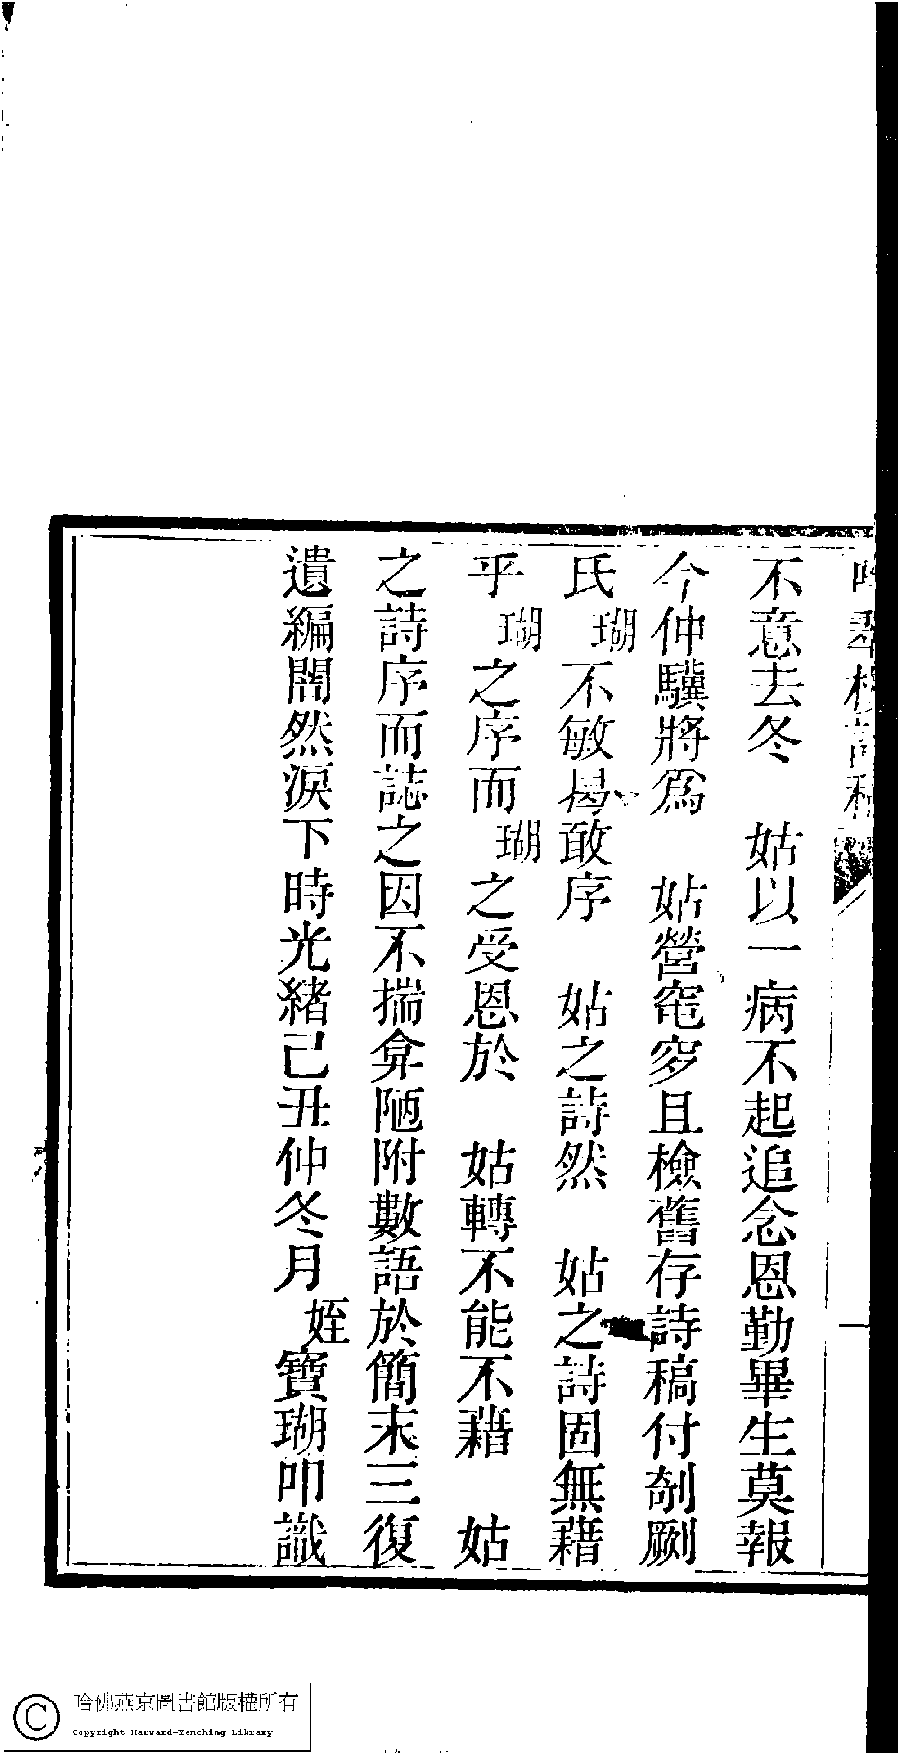 不意去冬　姑以一病不起追念恩勤畢生莫報
今仲驥將爲　姑營窀穸且檢舊存詩稿付剞劂
氏瑚不敏曷敢序　姑之詩然　姑之詩固無藉
乎瑚之序而瑚之受恩於　姑轉不能不藉　姑
之詩序而誌之因不揣弇陋附數語於簡末三復
遺編闇然淚下時光緒己丑仲冬月姪寶瑚叩識
哈佛燕京圖書館版權所有
Copyright Harvard-Yenching Library